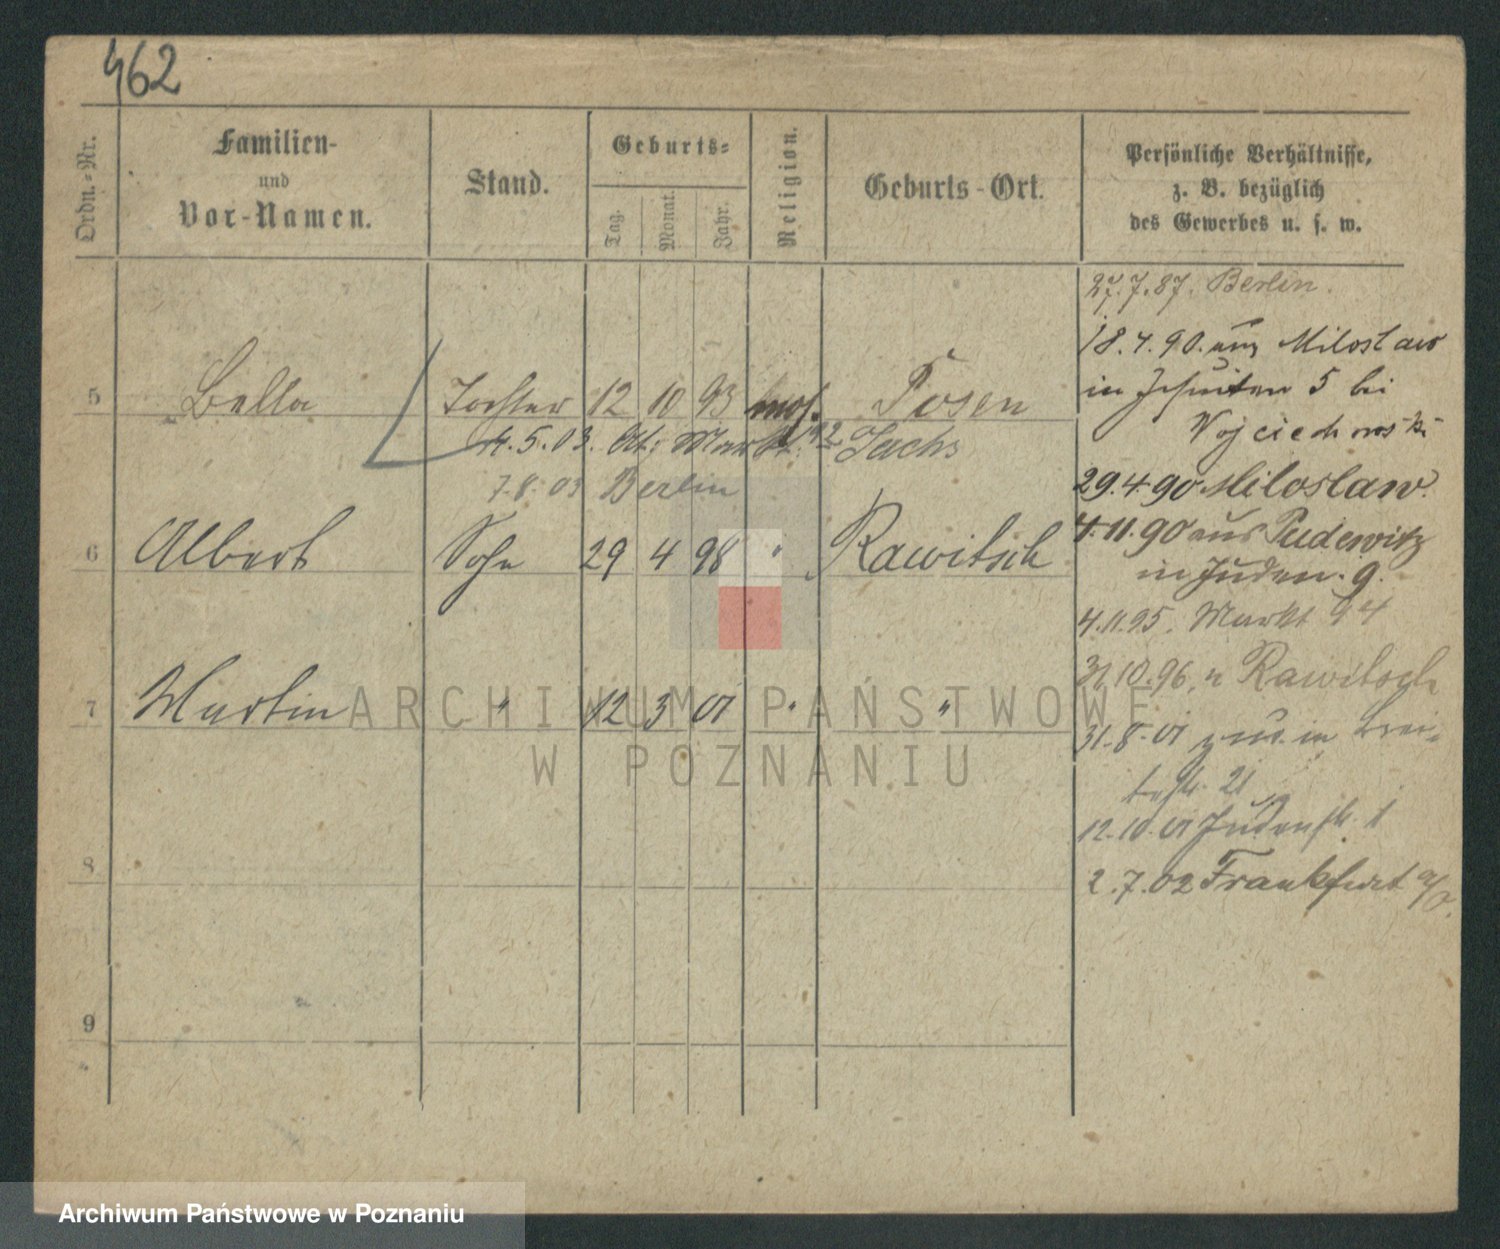 462
Ordn.-Nr.
Familien-
und
Vor-Namen.
Stand.
Geburts-
Tag.
Monat.
Jahr.
Religion.
Geburts-Ort.
Persönliche Verhältnisse,
z. B. bezüglich
des Gewerbes u. s. w.
5 Bella Tochter 12 10 93 mos. Posen
4.5.03. Alt. Markt 42 Sachs
7.8.03 Berlin
6 Albert Sohn 29 4 98 " Rawitsch
7 Martin " 12 3 01 " "
8
9
27.7.87. Berlin.
18.4.90. aus Miloslaw
in Jesuiten 5 bei
Wojciechowski
29.4.90 Miloslaw.
4.11.90 aus Pudewitz
in Juden. 9.
4.11.95. Markt 94
31.10.96. n Rawitsch
31.8.01 zur. in Brei-
testr. 21
12.10.01 Judenstr. 1
2.7.02 Frankfurt a/O.
ARCHIWUM PAŃSTWOWE
W POZNANIU
Archiwum Państwowe w Poznaniu